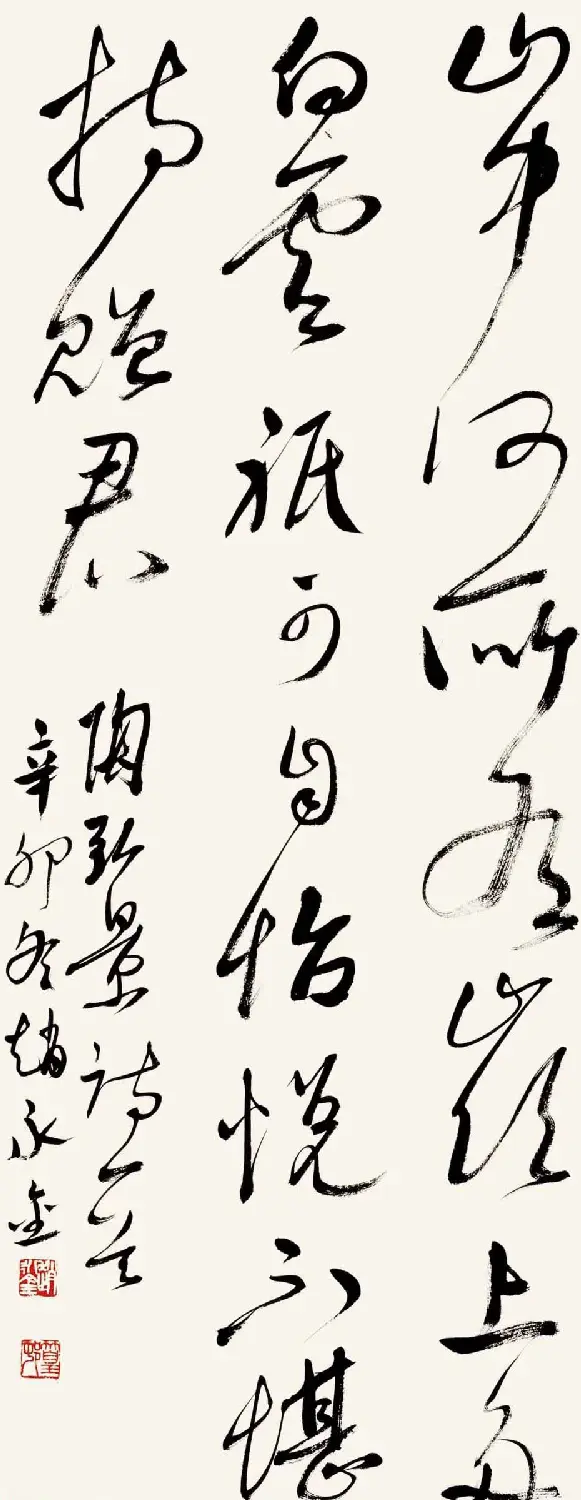 山中何所有嶺上多
白雲祇可自怡悅不堪
持贈君
陶弘景詩一首
辛卯冬趙永金